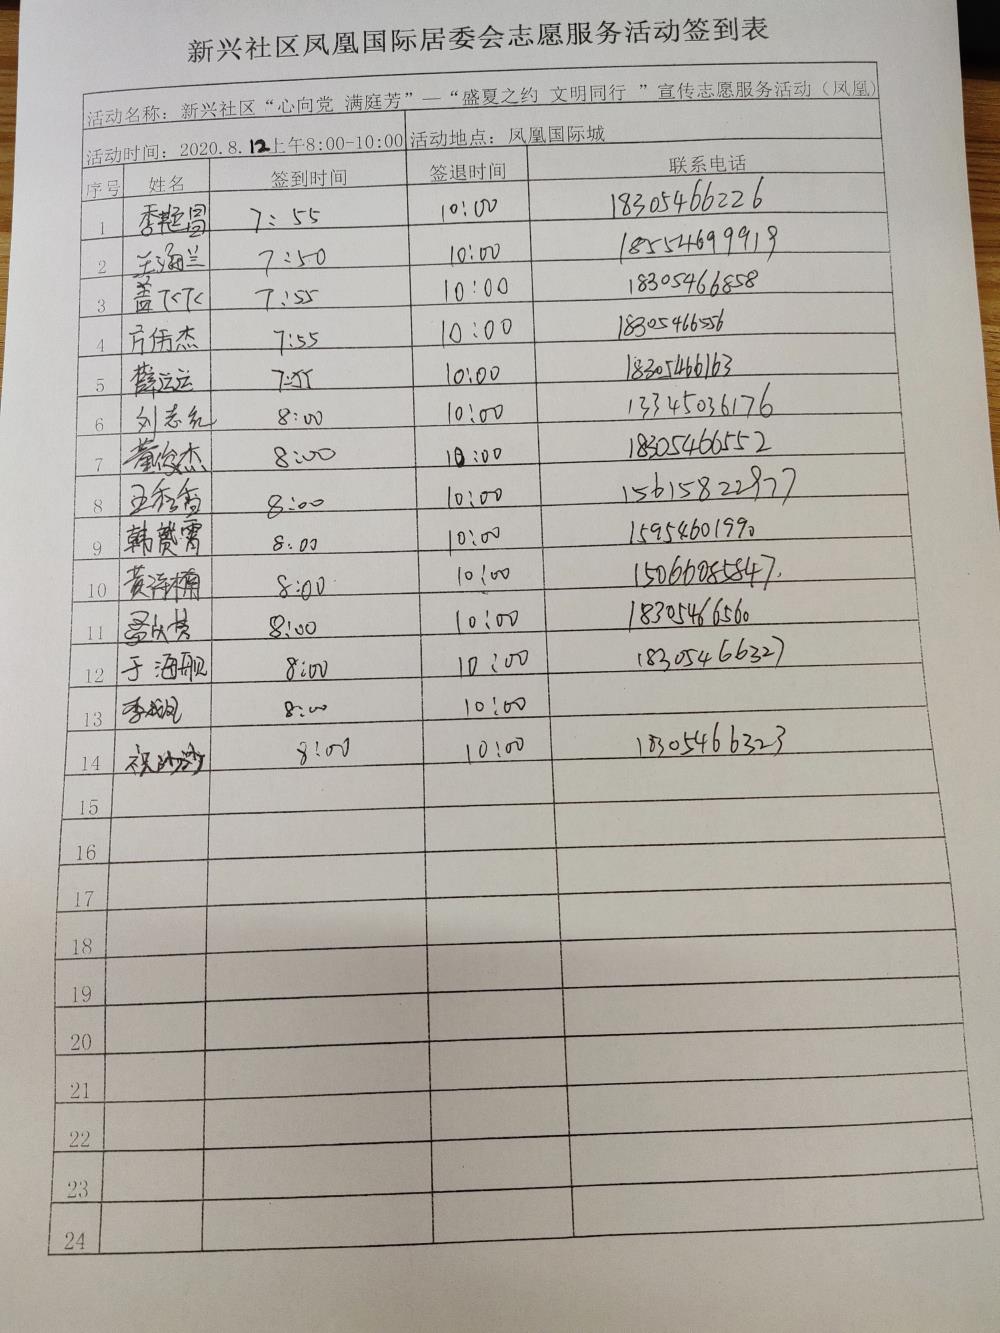 新兴社区凤凰国际居委会志愿服务活动签到表
活动名称：新兴社区“心向党 满庭芳”—“盛夏之约 文明同行 ”宣传志愿服务活动（凤凰）
活动时间：2020.8.12上午8:00-10:00 活动地点：凤凰国际城
序号 姓名 签到时间 签退时间 联系电话
1 7:55 10:00 18305466226
2 王海兰 7:50 10:00 18554699919
3 盖 7:55 10:00 18305466858
4 方伟杰 7:55 10:00 18305466556
5 薛运运 7:55 10:00 18305466163
6 刘志红 8:00 10:00 13345036176
7 董俊杰 8:00 10:00 18305466552
8 王 8:00 10:00 15615822977
9 韩 8:00 10:00 15954601990
10 黄 8:00 10:00 15066085847
11 8:00 10:00 18305466560
12 于海舰 8:00 10:00 18305466327
13 李 8:00 10:00
14 祝沙沙 8:00 10:00 18305466323
15
16
17
18
19
20
21
22
23
24